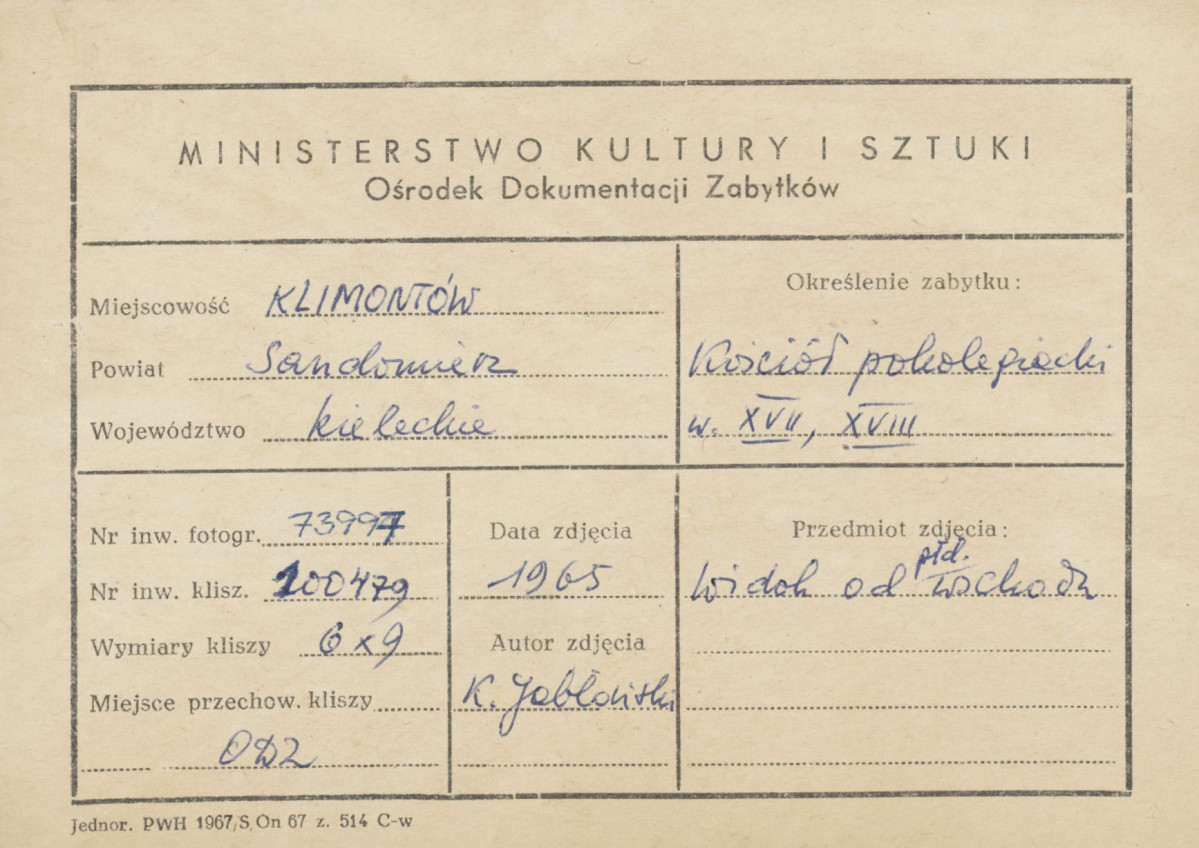 MINISTERSTWO KULTURY I SZTUKI
Ośrodek Dokumentacji Zabytków
Miejscowość KLIMONTÓW
Powiat Sandomierz
Województwo kieleckie
Określenie zabytku:
Kościół pokolegiacki
w. XVII, XVIII
Nr inw. fotogr. 73997
Nr inw. klisz. 100479
Wymiary kliszy 6x9
Miejsce przechow. kliszy
ODZ
Data zdjęcia
1965
Autor zdjęcia
K. Jabłoński
Przedmiot zdjęcia:
płd.
Widok od wschodu
Jednor. PWH 1967/S. On 67 z. 514 C-w